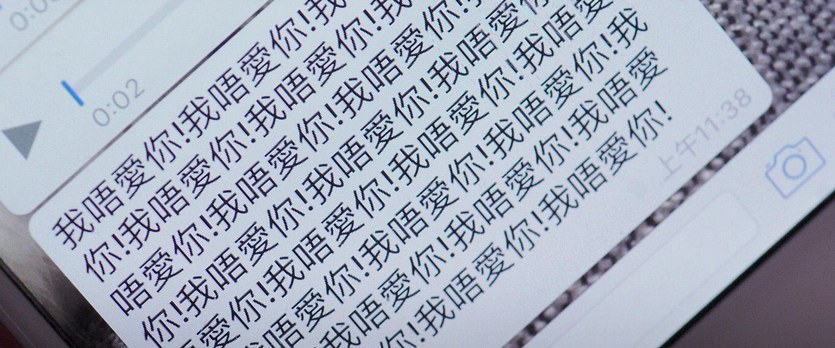 0:02
我唔愛你!我唔愛你!我
你!我唔愛你!我唔愛你!我
唔愛你!我唔愛你!我唔愛你!
你!我唔愛你!我唔愛你!我唔愛
愛你!我唔愛你!我唔愛你!我唔愛
唔愛你!我唔愛你!我唔愛你!我
我唔愛你!我唔愛你!我唔愛
你!我唔愛你!我唔愛你!
上午11:38